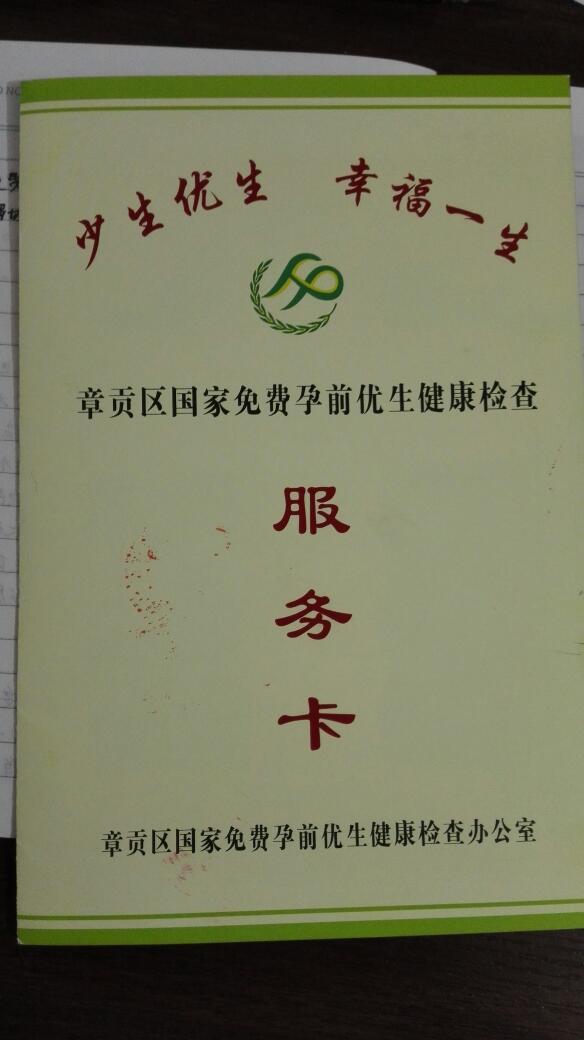 少生优生 幸福一生
章贡区国家免费孕前优生健康检查
服
务
卡
章贡区国家免费孕前优生健康检查办公室